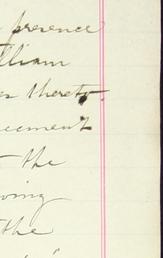 presence
illiam
thereto.
ecement
the
wing
the